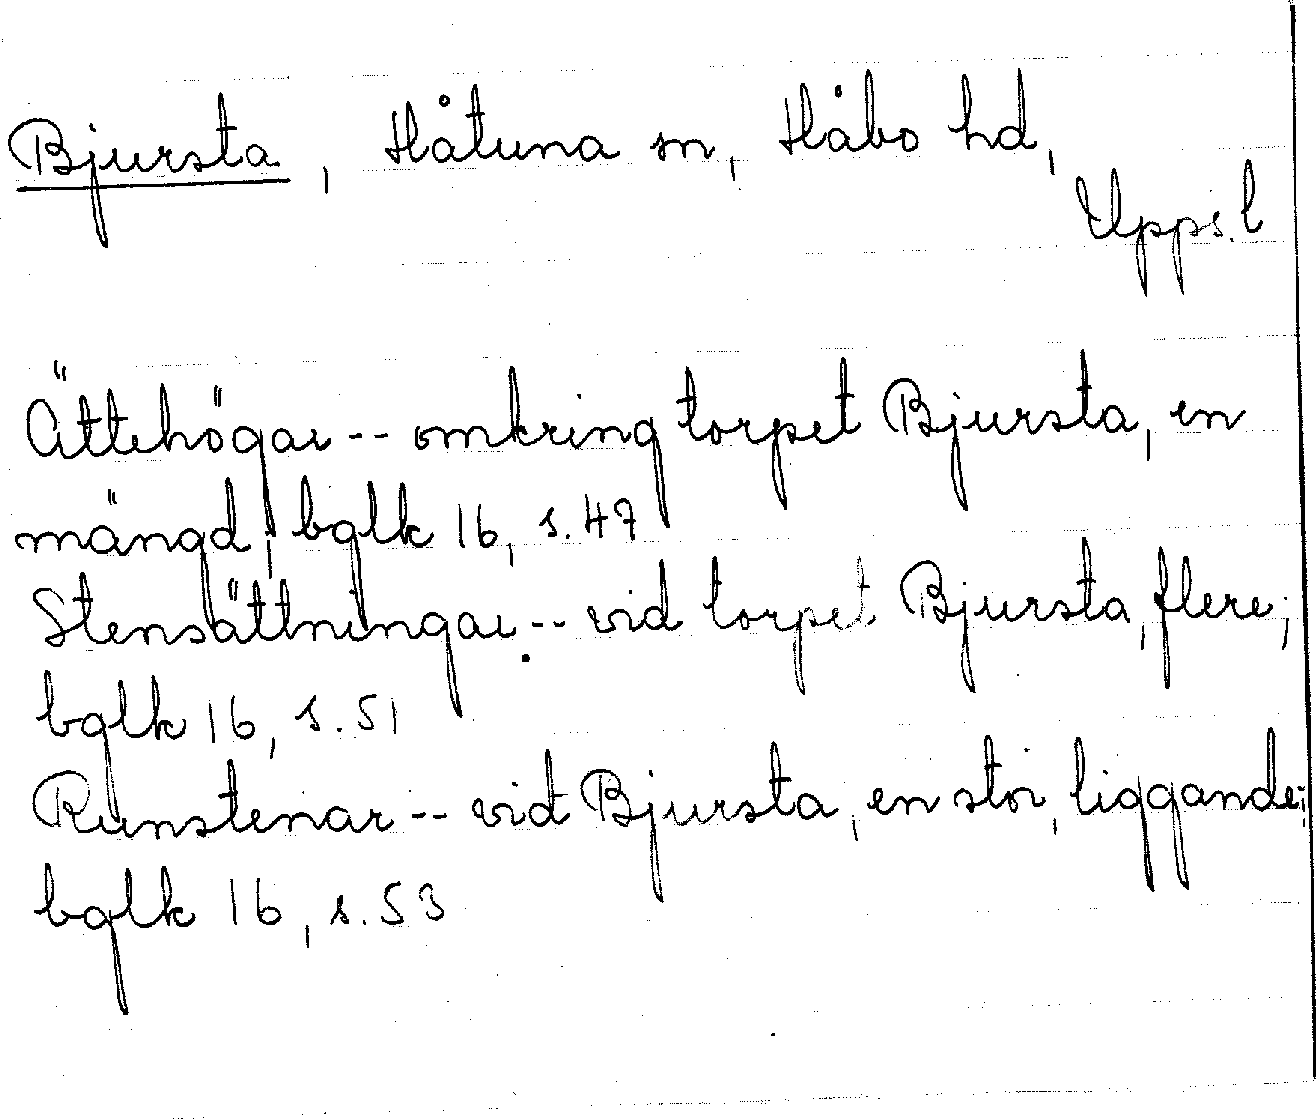 Bjursta, Håtuna sn, Håbo hd,
Upps. l
Ättehögar -- omkring torpet Bjursta, en
mängd; bglk 16, s. 47
Stensättningar -- vid torpet Bjursta, flere;
bglk 16, s. 51
Runstenar -- vid Bjursta, en stor, liggande;
bglk 16, s. 53